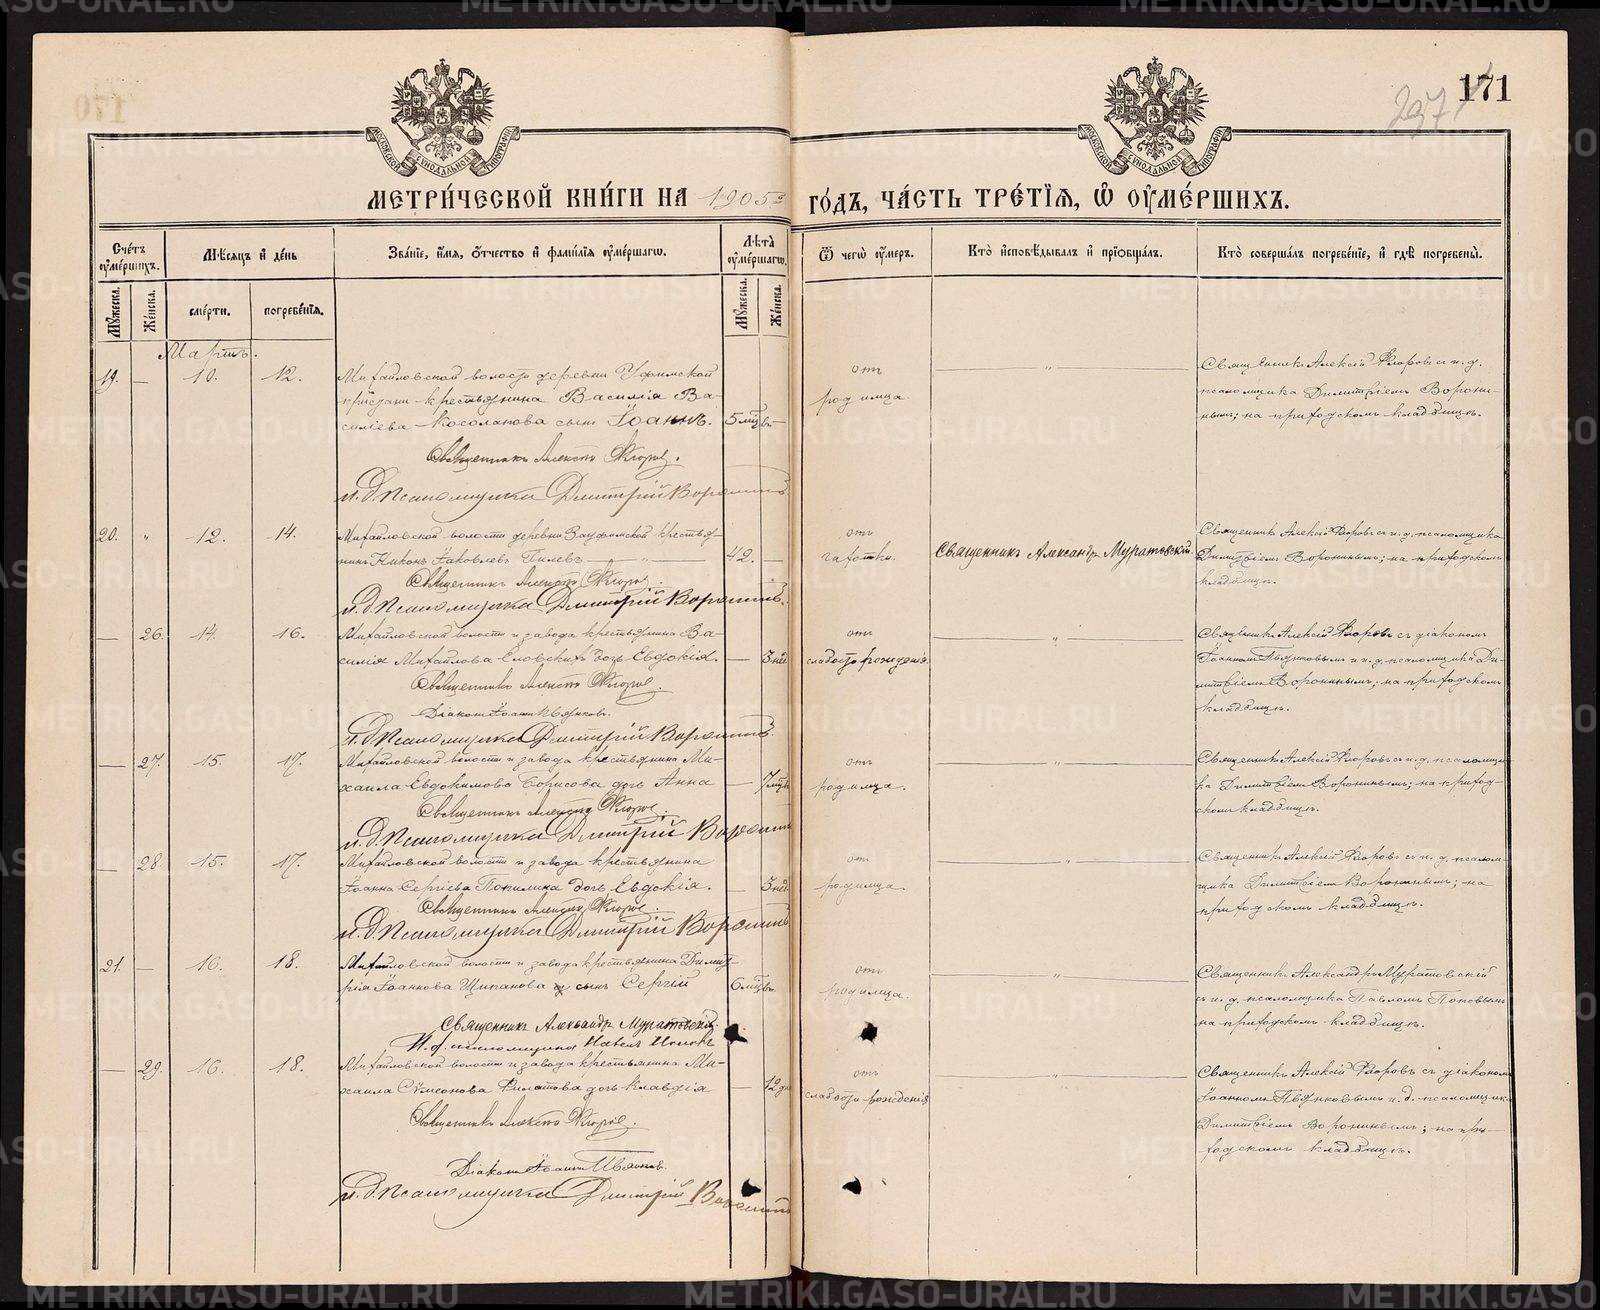 171
297
МЕТРИ́ЧЕСКОЙ КНИ́ГИ НА 1905й ГО́ДЪ, ЧА́СТЬ ТРЕ́ТЇѦ, Ѡ ОУМЕ́РШИХЪ.
МОСКОВСКОЙ СѴНОДАЛЬНОЙ ТИПОГРАФІИ
МОСКОВСКОЙ СѴНОДАЛЬНОЙ ТИПОГРАФІИ
Счетъ оумершихъ.
Мѣсяцъ и день
Званіе, имя, отчество и фамилія оумершагѡ.
Лѣта оумершагѡ.
Ѿ чегѡ оумеръ.
Кто исповѣдывалъ и пріобщалъ.
Кто совершалъ погребеніе, и гдѣ погребены.
Мужеска.
Женска.
смерти.
погребенія.
Мужеска.
Женска.
Мартъ.
19. — 10. 12.
Михайловской волости деревни Уфимской
пристани крестьянина Василія Ва-
силіева Косолапова сынъ Іоаннъ. 5 мцвъ —
Священникъ Алексій Флоровъ.
и. д. псаломщика Дмитрій Воронинъ.
отъ
родимца
"
Священникъ Алексій Флоровъ съ и. д.
псаломщика Димитріемъ Ворони-
нымъ; на приходскомъ кладбищѣ.
20. " 12. 14.
Михайловской волости деревни Зауфимской крестья-
нинъ Никонъ Іаковлевъ 42. —
Священникъ Алексій Флоровъ.
и. д. псаломщика Дмитрій Воронинъ.
отъ
чахотки.
Священникъ Александръ Муратовскій.
Священникъ Алексій Флоровъ съ и. д. псаломщика
Димитріемъ Воронинымъ; на приходскомъ
кладбищѣ.
— 26. 14. 16.
Михайловской волости и завода крестьянина Ва-
силія Михайлова Еловскихъ дочь Евдокія. — 3 нед.
Священникъ Алексій Флоровъ.
Діаконъ Іоаннъ Пьянковъ.
и. д. псаломщика Дмитрій Воронинъ.
отъ
слабости рожденія.
"
Священникъ Алексій Флоровъ съ діакономъ
Іоанномъ Пьянковымъ и и. д. псаломщика Ди-
митріемъ Воронинымъ; на приходскомъ
кладбищѣ.
— 27. 15. 17.
Михайловской волости и завода крестьянина Ми-
хаила Евдокимова Борисова дочь Анна — 7 мцвъ
Священникъ Алексій Флоровъ.
и. д. псаломщика Дмитрій Воронинъ
отъ
родимца.
"
Священникъ Алексій Флоровъ съ и. д. псаломщи-
ка Димитріемъ Воронинымъ; на приход-
скомъ кладбищѣ.
— 28. 15. 17.
Михайловской волости и завода крестьянина
Іоанна Сергіева дочь Евдокія. — 3 нед.
Священникъ Алексій Флоровъ.
и. д. псаломщика Дмитрій Воронинъ
отъ
родимца.
"
Священникъ Алексій Флоровъ съ и. д. псалом-
щика Димитріемъ Воронинымъ; на
приходскомъ кладбищѣ.
21. — 16. 18.
Михайловской волости и завода крестьянина Димит-
рія Іоаннова Щипанова сынъ Сергій 6 мцвъ.
Священникъ Александръ Муратовскій.
И. д. псаломщика Павелъ Поповъ
отъ
родимца.
"
Священникъ Александръ Муратовскій
съ и. д. псаломщика Павломъ Поповымъ
на приходскомъ кладбищѣ.
— 29. 16. 18.
Михайловской волости и завода крестьянина Ми-
хаила Сѵмеонова Филатова дочь Клавдія — 12 дн.
Священникъ Алексій Флоровъ.
Діаконъ Іоаннъ Пьянковъ.
и. д. псаломщика Дмитрій Воронинъ
отъ
слабости рожденія
"
Священникъ Алексій Флоровъ съ діакономъ
Іоанномъ Пьянковымъ и. д. псаломщика
Димитріемъ Воронинымъ; на при-
ходскомъ кладбищѣ.
METRIKI.GASO-URAL.RU